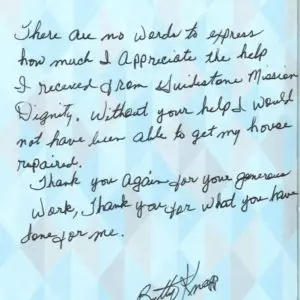 There are no words to express
how much I appreciate the help
I receved from Guidestone Mission
Dignity. Without your help I would
not have been able to get my house
repaired.
Thank you again for your generous
work, Thank you for what you have
done for me.
Betty Knapp